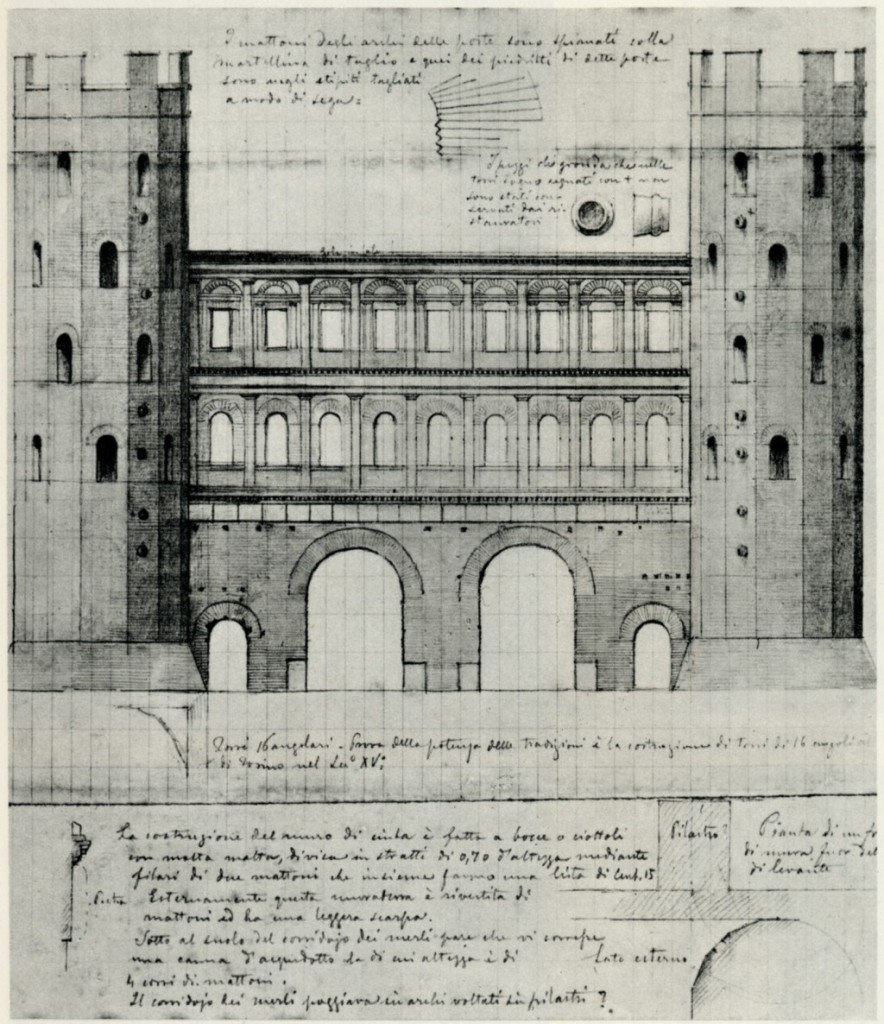 I mattoni degli archi delle porte sono spianati colla
martellina di taglio e quei dei piedritti di dette porte
sono negli stipiti tagliati
a modo di sega:
I pezzi di gronda che nelle
torri segnati con + non
sono stati
dai ri-
stauratori
Torri 16angolari - Prova della potenza delle tradizioni è la costruzione di torri di 16 angoli
di Torino nel Sec° XV°
La costruzione del muro di cinta è fatta a bocce o ciottoli
con molta malta, divisa in stratti di 0,70 d'altezza mediante
filari di due mattoni che insieme fanno una lista di Cent. 15
Esternamente questa muratura è rivestita di
mattoni ed ha una leggera scarpa.
Sotto al suolo del corridojo dei merli pare che vi corresse
una canna d'acquedotto la di cui altezza è di
4 corsi di mattoni.
Il corridojo dei merli poggiava su archi voltati su pilastri ?
Pilastro
Pianta di un
di mura fuor
di levante
Lato esterno